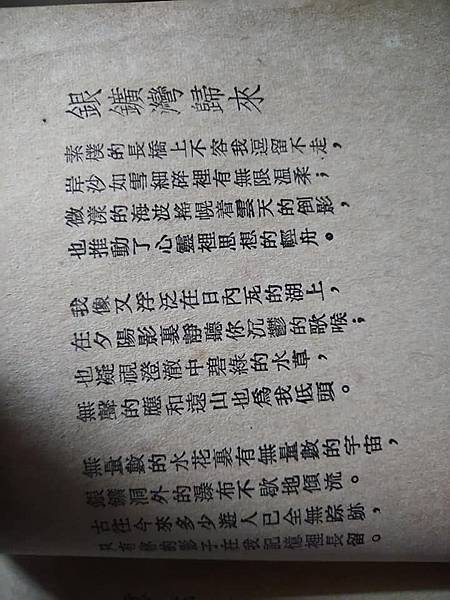 銀鑛灣歸來
素樸的長橋上不容我逗留不走，
岸沙如雪細碎裡有無限温柔；
微漾的海波搖幌着雲天的倒影，
也推動了心靈裡思想的輕舟。
我像又浮泛在日內瓦的湖上，
在夕陽影裏靜聽你沉鬱的歌喉；
也凝視澄澈中碧綠的水草，
無聲的應和遠山也爲我低頭。
無量數的水花裏有無量數的宇宙，
銀鑛洞外的瀑布不歇地傾流。
古往今來多少遊人已全無踪跡，
只有你的影子在我記憶裡長留。